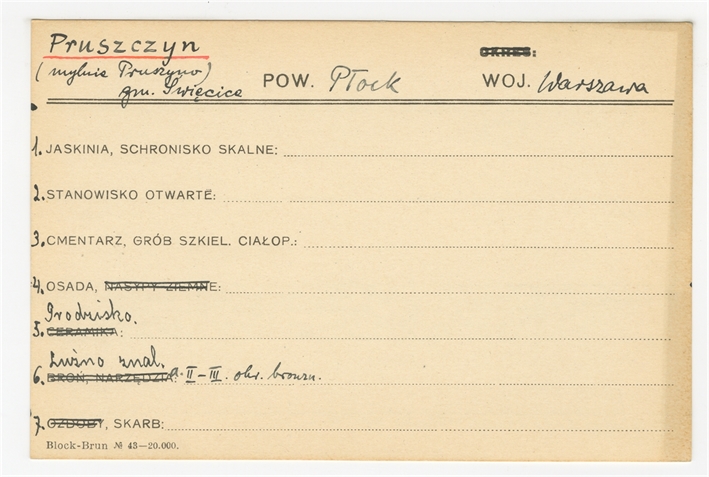 Pruszczyn
OKRES:
(mylnie Pruszyno)
POW. Płock
WOJ. Warszawa
gm. Święcice
1. JASKINIA, SCHRONISKO SKALNE:
2. STANOWISKO OTWARTE:
3. CMENTARZ, GRÓB SZKIEL. CIAŁOP.:
4. OSADA, NASYPY ZIEMNE:
Grodzisko.
5. CERAMIKA:
Luźno znal.
6. BROŃ, NARZĘDZIA: a. II–III. okr. bronzu.
7. OZDOBY, SKARB:
Block-Brun № 43—20.000.